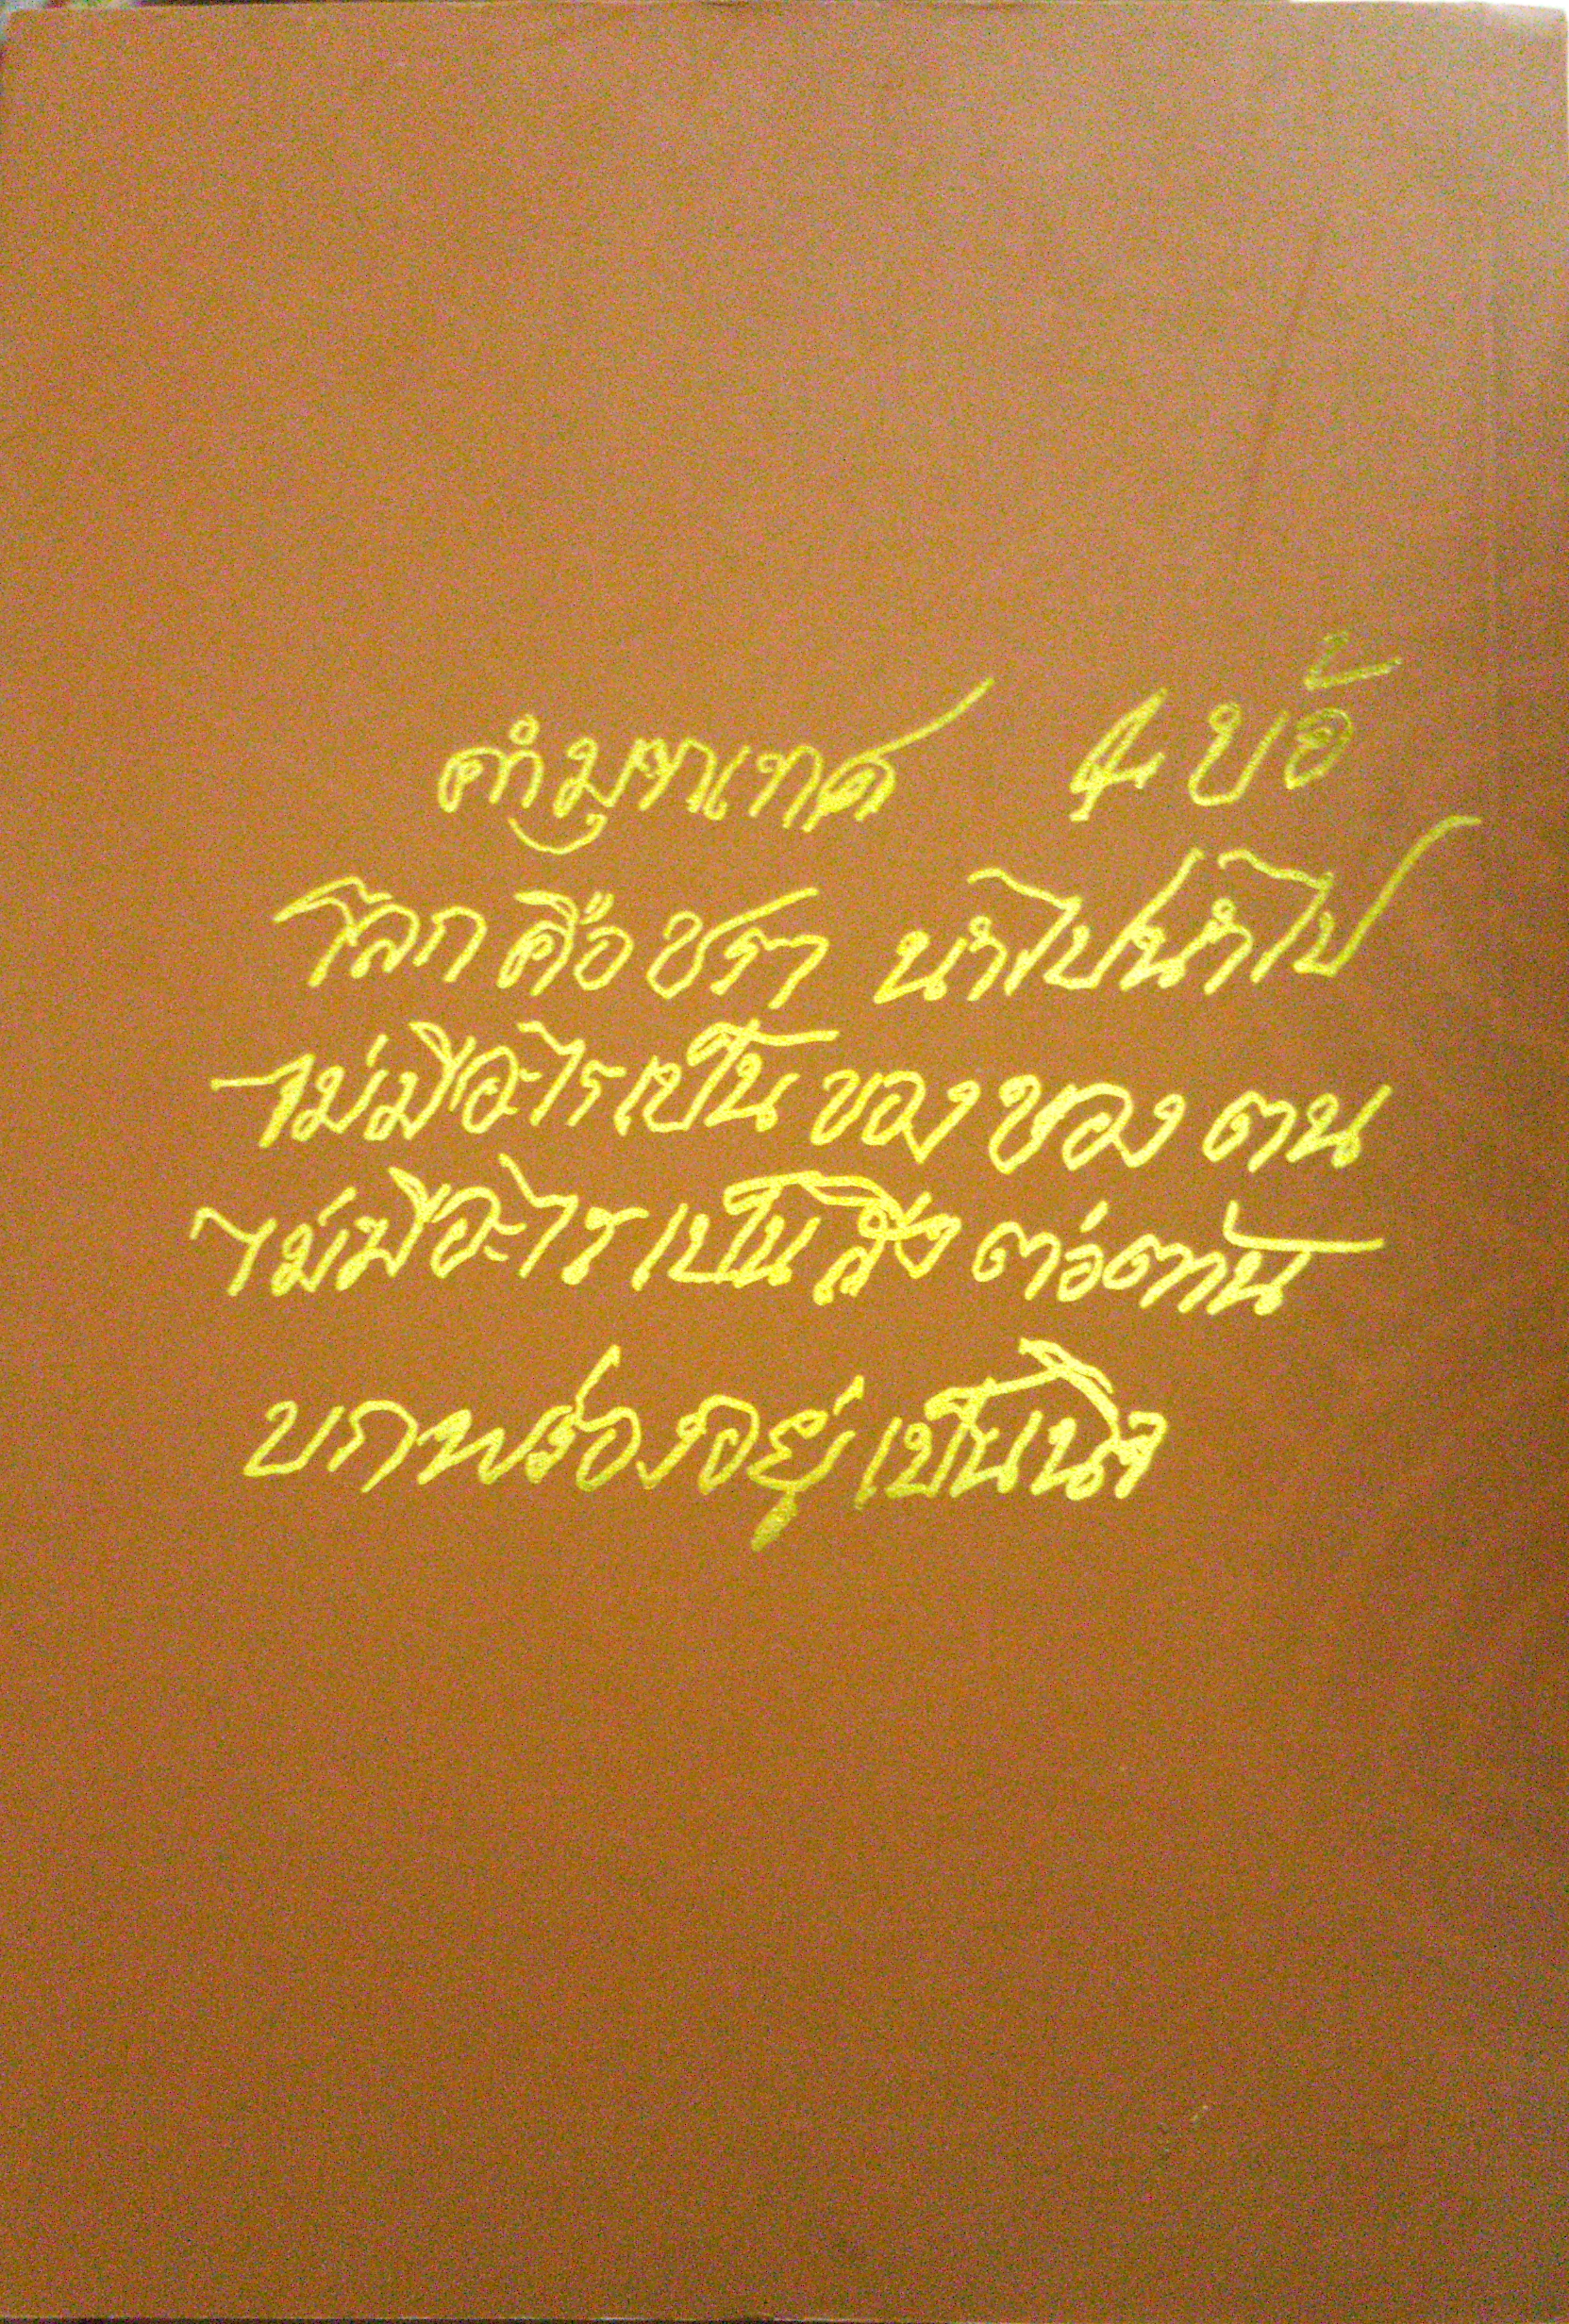 โลกคือชรา นำไปนำไป
ไม่มีอะไรเป็น ของของ ตน
ไม่มีอะไร เป็นสิ่ง ต่อต้าน
บกพร่องอยู่ เป็นนิจ